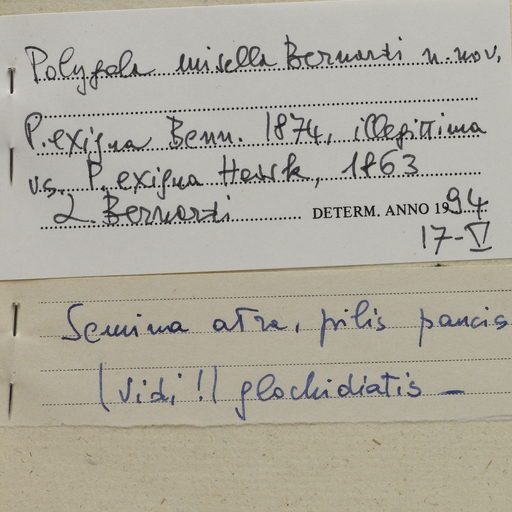 Polygala misella Bernardi n. nov.
P. exigua Benn. 1874, illegittima
vs. P. exigua Hassk, 1863
L. Bernardi DETERM. ANNO 1994
17-V
Semina atra, pilis paucis
(vidi!) glochidiatis —